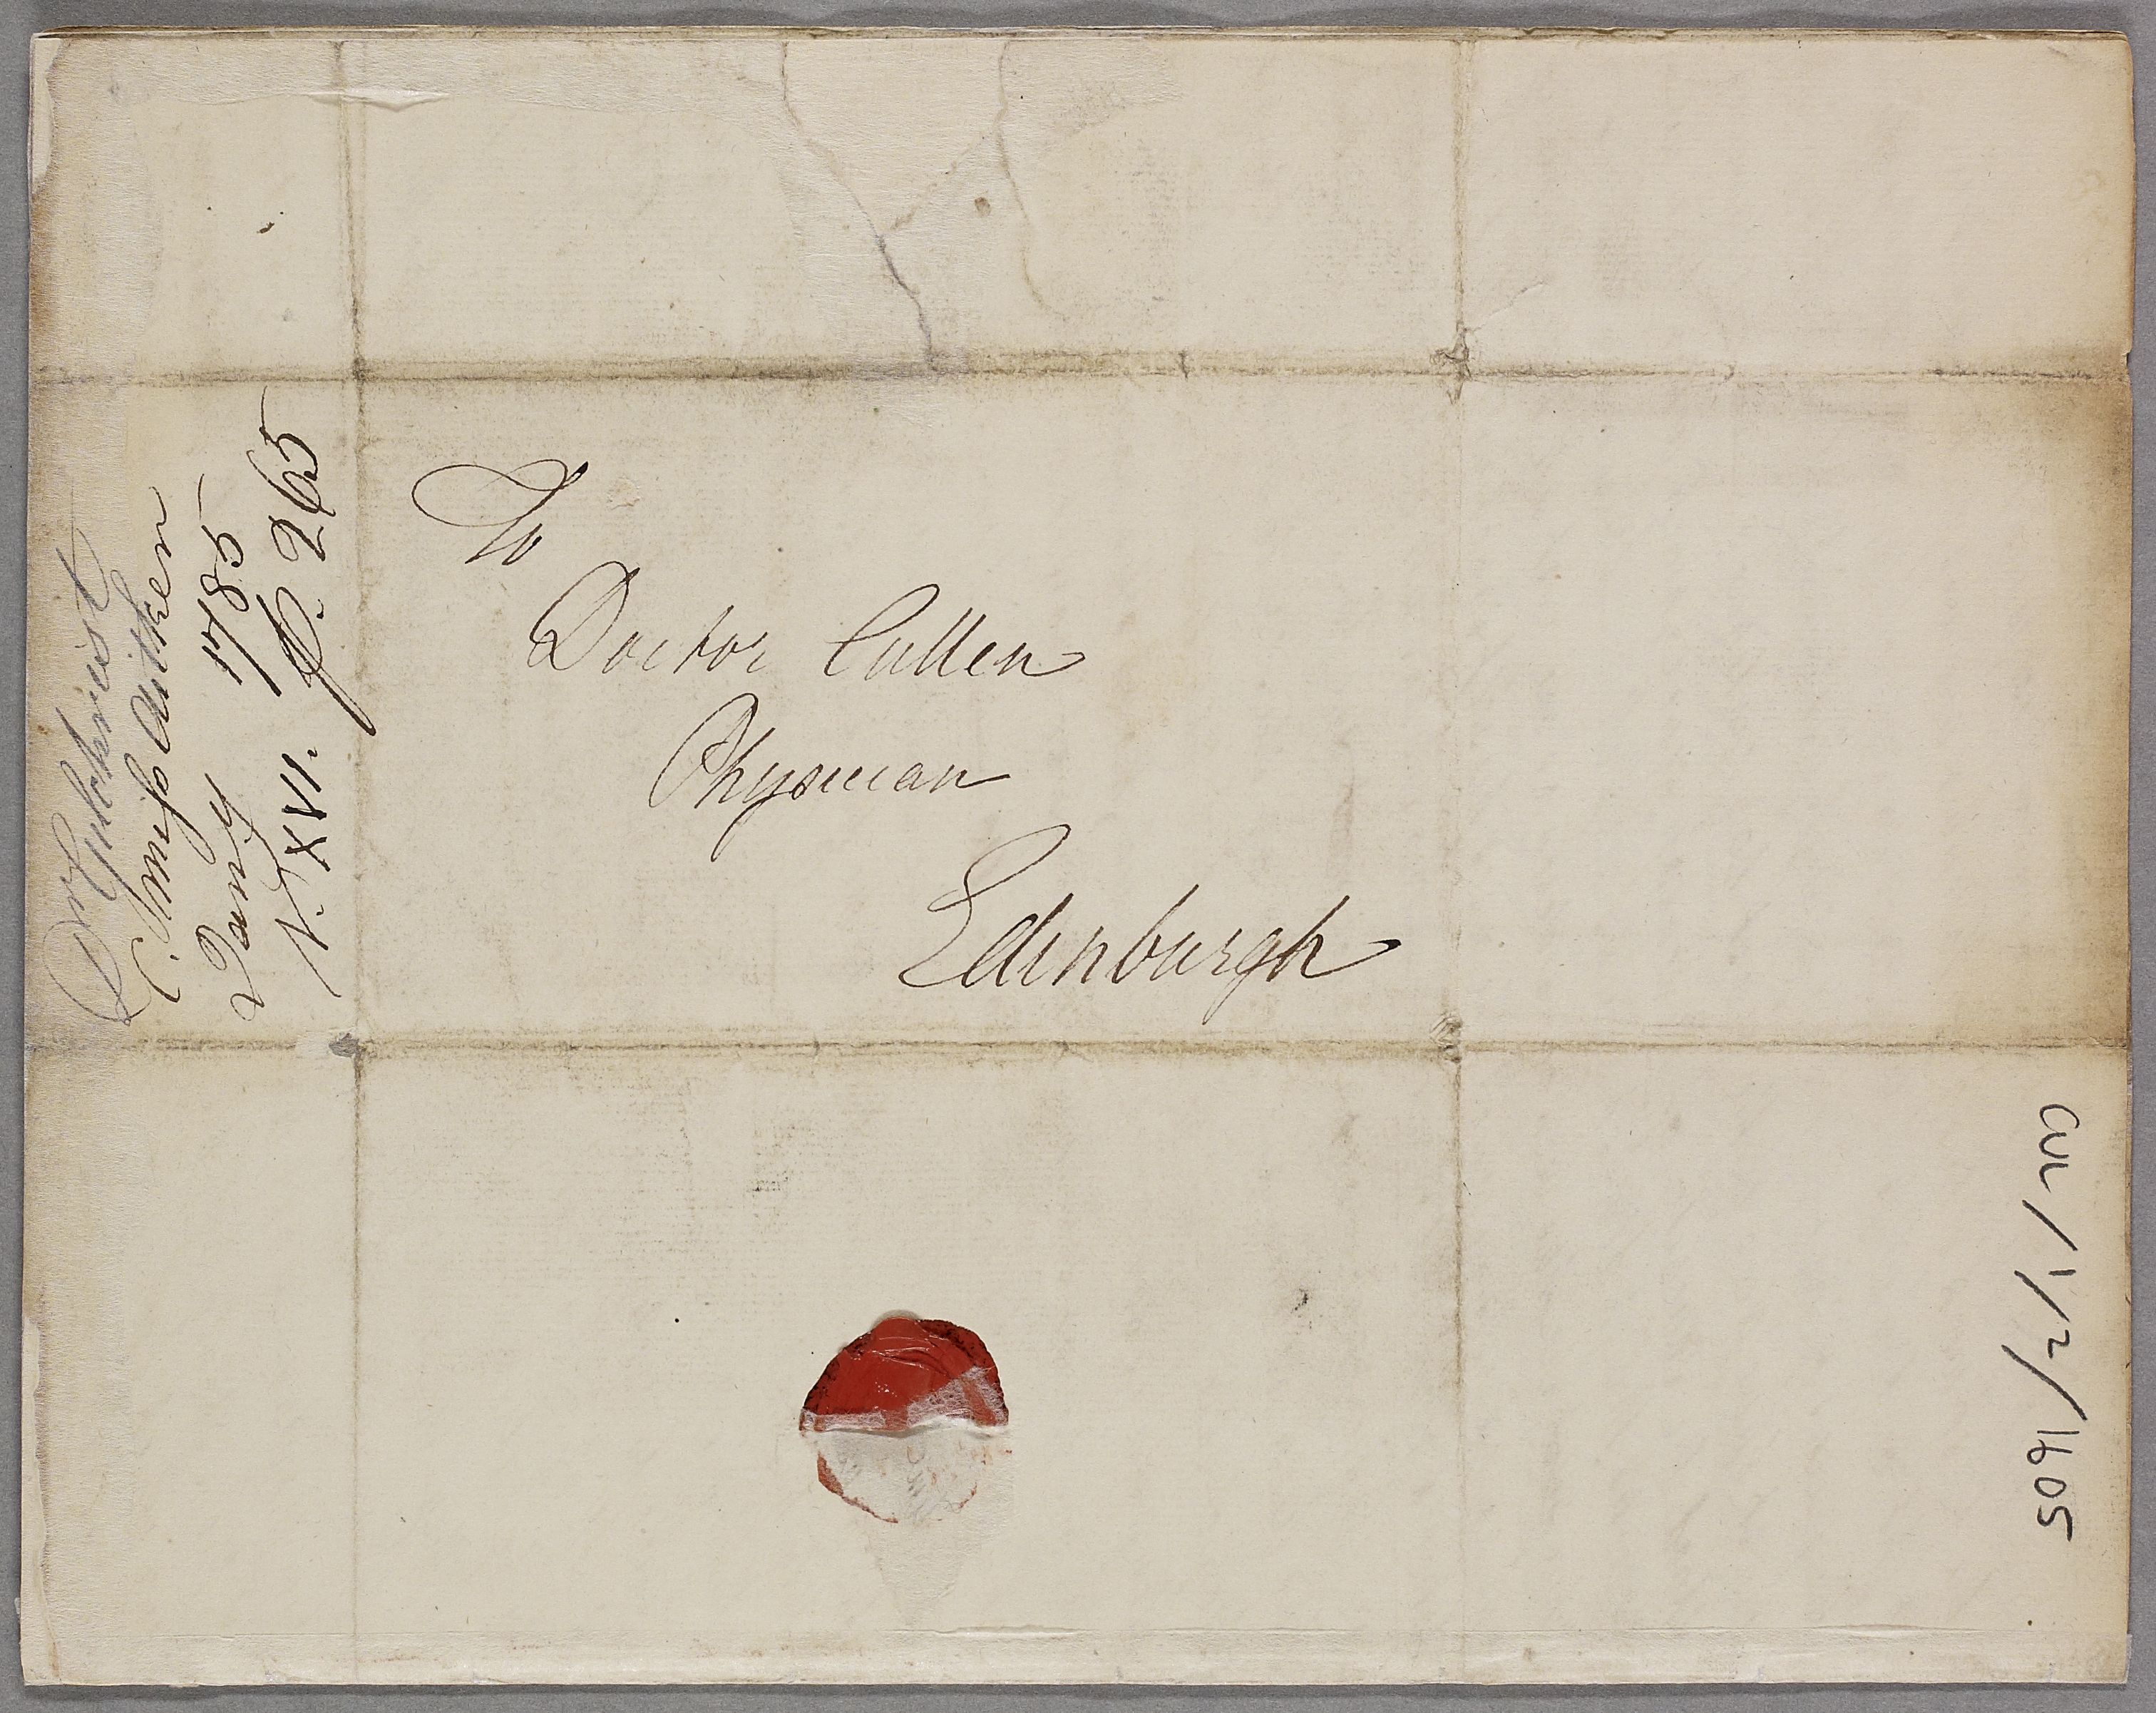 To
Doctor Cullen
Physician
Edinburgh
Dr Gilchrist
C. Miss Aitken
Janry 1785
V. XVI. P. 265
CUL/1/2/1605